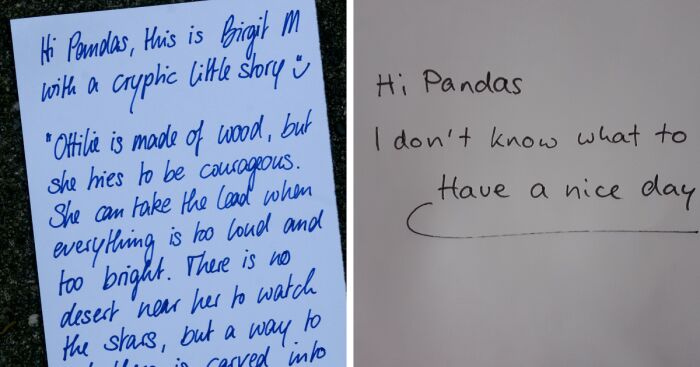 Hi Pandas, this is Birgit M
with a cryptic little story
"Ottilie is made of wood, but
she tries to be courageous.
She can take the lead when
everything is too loud and
too bright. There is no
desert near her to watch
the stars, but a way to
is carved into
Hi Pandas
I don't know what to
Have a nice day